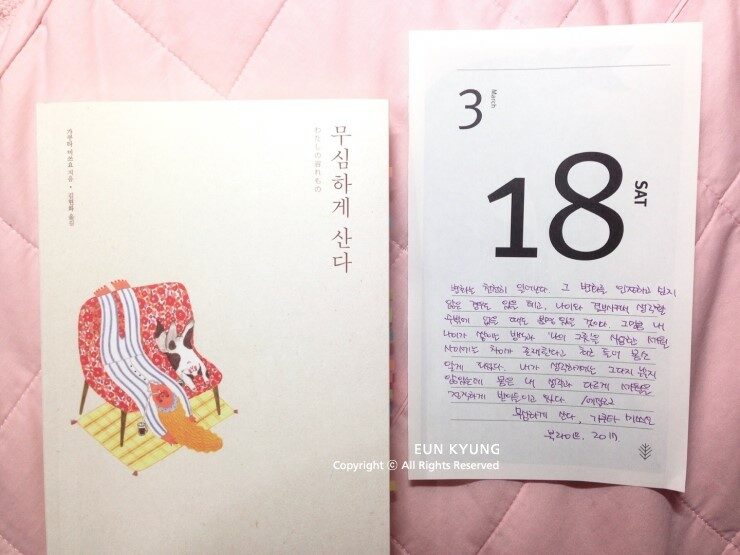 무심하게 산다
わたしの容れもの
가쿠타 미쓰요 지음 • 김현화 옮김
3
March
18
SAT
변화는 천천히 일어난다. 그 변화를 인정하고 싶지
않은 경우도 있을 테고, 나이와 결부시켜서 생각할
수밖에 없을 때도 있을 것이다. 그 내
나이가 쌓이는 방식과 '나의 그릇'은 세월
사이에는 차이가 존재한다고 최근 들어 몸소
알게 되었다. 내가 생각하기에는 그다지 늙지
않았는데 몸은 내 생각과 다르게 세월을
진지하게 받아들이고 있다.
무심하게 산다, 가쿠타 미쓰요
북라이프. 2017
EUN KYUNG
Copyright ⓒ All Rights Reserved